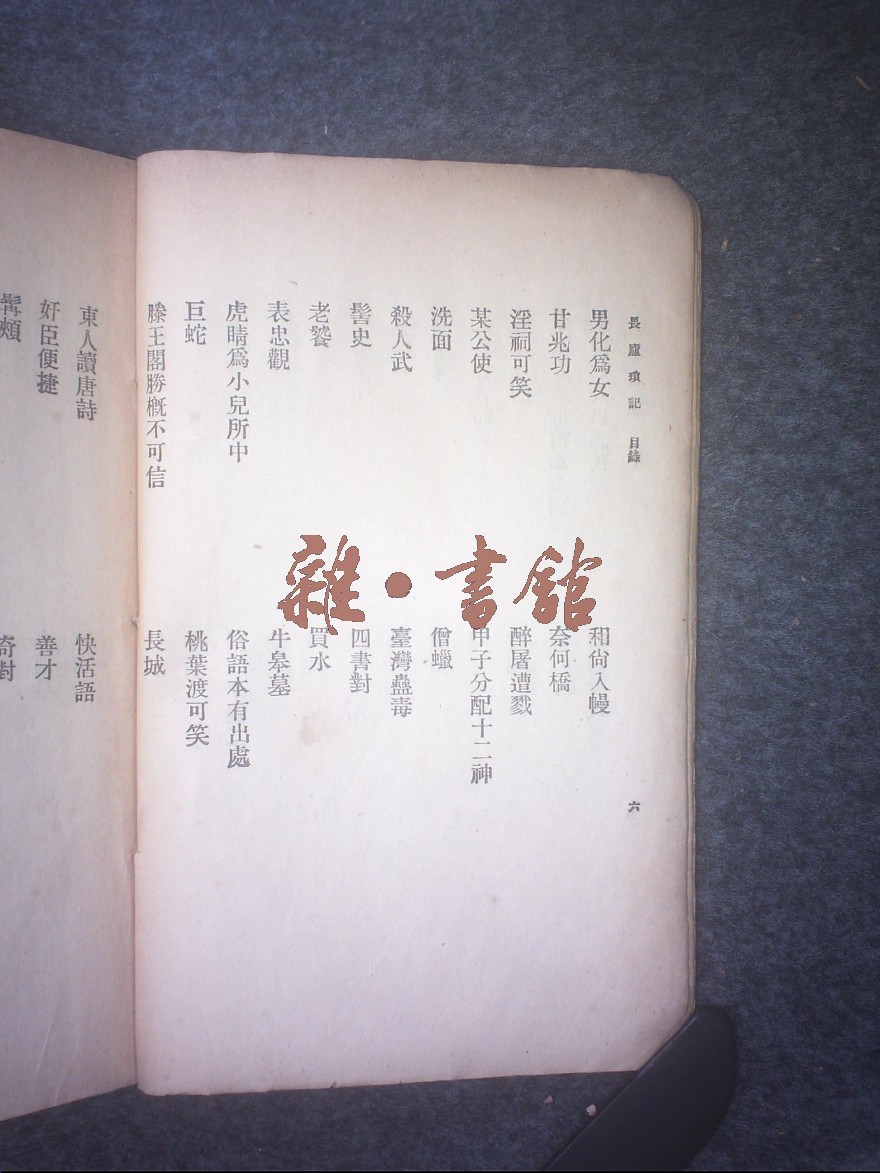 畏廬瑣記 目錄 六
男化爲女 和尙入幔
甘兆功 奈何橋
淫祠可笑 醉屠遭戮
某公使 甲子分配十二神
洗面 僧蠟
殺人武 臺灣蠱毒
髻史 四書對
老饕 買水
表忠觀 牛皋墓
虎睛爲小兒所中 俗語本有出處
巨蛇 桃葉渡可笑
滕王閣勝概不可信 長城
東人讀唐詩 快活語
奸臣便捷 善才
奇對
雜·書館